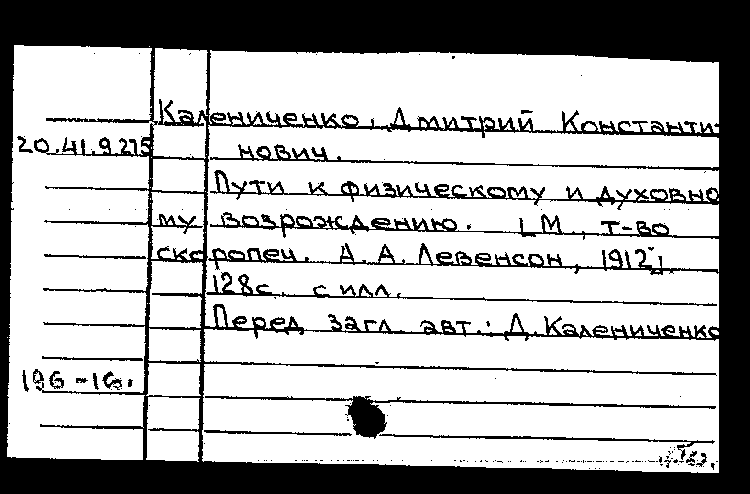 Калениченко, Дмитрий Константи-
20.41.9.275 нович.
Пути к физическому и духовно
му возрождению. [М., т-во
скоропеч. А.А. Левенсон, 1912].
128с. с илл.
Перед загл. авт.: Д. Калениченко
196-1б.